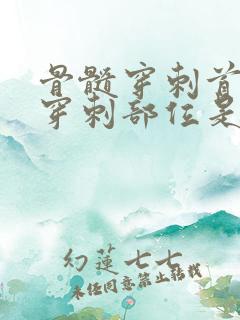 骨髓穿刺首
穿刺部位是
幻莲七七
未经同意禁止转载